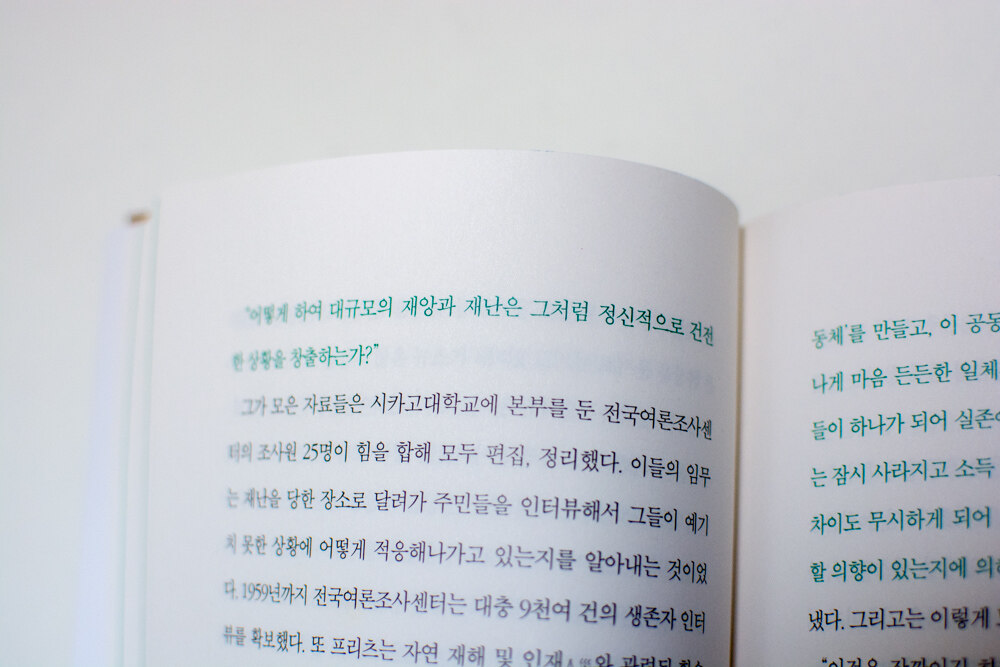 "어떻게 하여 대규모의 재앙과 재난은 그처럼 정신적으로 건전
한 상황을 창출하는가?"
그가 모은 자료들은 시카고대학교에 본부를 둔 전국여론조사센
터의 조사원 25명이 힘을 합해 모두 편집, 정리했다. 이들의 임무
는 재난을 당한 장소로 달려가 주민들을 인터뷰해서 그들이 예기
치 못한 상황에 어떻게 적응해나가고 있는지를 알아내는 것이었
다. 1959년까지 전국여론조사센터는 대충 9천여 건의 생존자 인터
뷰를 확보했다. 또 프리츠는 자연 재해 및 인재人災와 관련된
동체'를 만들고, 이 공동
나게 마음 든든한 일체
들이 하나가 되어 실존
는 잠시 사라지고 소득
차이도 무시하게 되어
할 의향이 있는지에 의하
냈다. 그리고는 이렇게